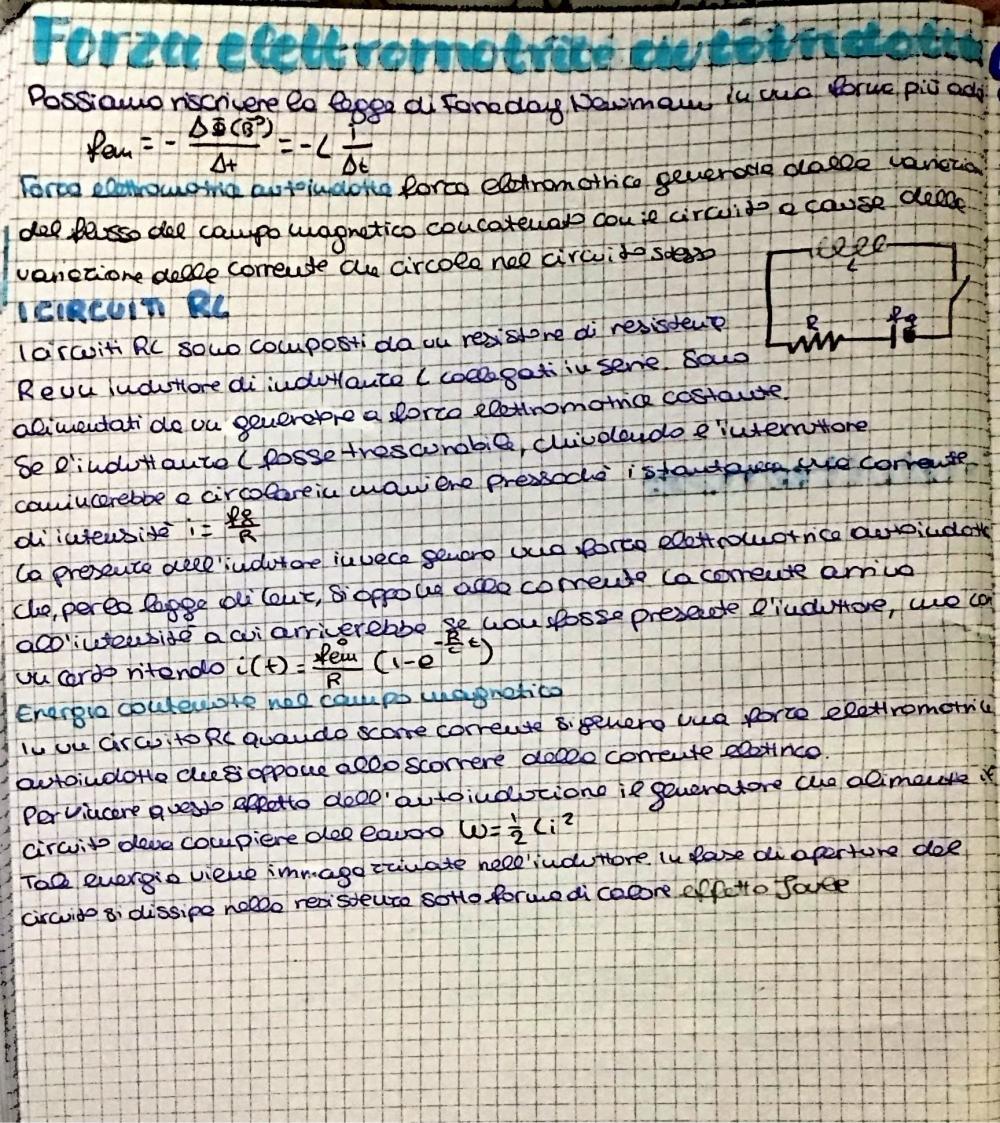 Forza elettromotrice autoindotta
Possiamo riscrivere la legge di Faraday Newmann in una forma più ad
fem = - ΔΦ(B⃗)/Δt = -L i/Δt
Forza elettromotrice autoindotta forza elettromotrice generata dalla variazion
del flusso del campo magnetico concatenato con il circuito a causa della
variazione della corrente che circola nel circuito stesso
L
I CIRCUITI RL
R fg
I circuiti RL sono composti da un resistore di resistenza
R e un induttore di induttanza L collegati in serie. Sono
alimentati da un generatore a forza elettromotrice costante.
Se l'induttanza L fosse trascurabile, chiudendo l'interruttore
comincerebbe a circolare in maniera pressoché istantanea una corrente
di intensità i = fg/R
La presenza dell'induttore invece genera una forza elettromotrice autoindott
che, per la legge di Lenz, si oppone alla corrente La corrente arriva
all'intensità a cui arriverebbe se non fosse presente l'induttore, ma con
un certo ritardo i(t) = fem/R (1-e^(-R/L t))
Energia contenuta nel campo magnetico
In un circuito RL quando scorre corrente si genera una forza elettromotrice
autoindotta che si oppone allo scorrere della corrente elettrica.
Per vincere questo effetto dell'autoinduzione il generatore che alimenta il
circuito deve compiere del lavoro W=½Li²
Tale energia viene immagazzinata nell'induttore. In fase di apertura del
circuito si dissipa nella resistenza sotto forma di calore effetto Joule